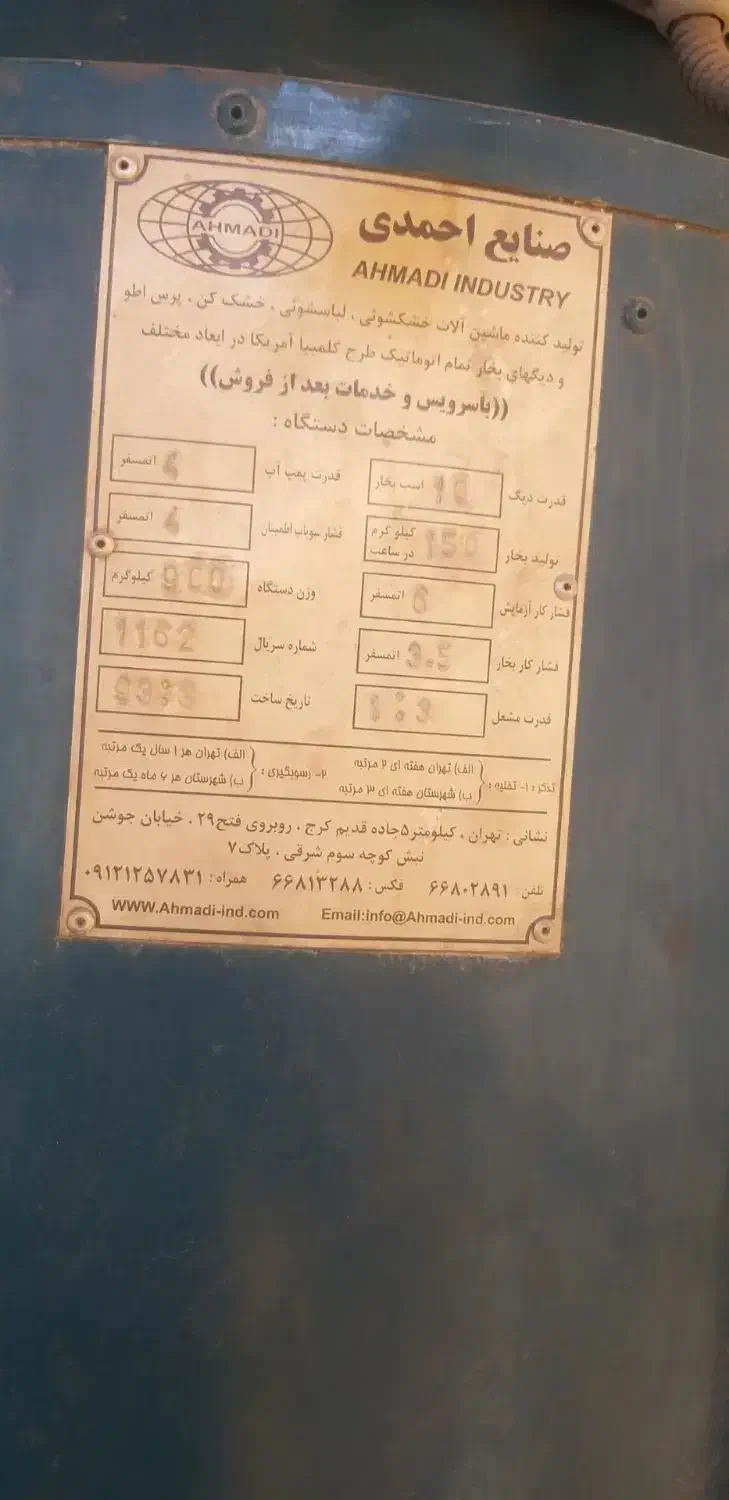 AHMADI
صنایع احمدی
AHMADI INDUSTRY
تولید کننده ماشین آلات خشکشوئی ، لباسشوئی ، خشک کن ، پرس اطو
و دیگهای بخار تمام اتوماتیک طرح کلمبیا آمریکا در ابعاد مختلف
((باسرویس و خدمات بعد از فروش))
مشخصات دستگاه :
قدرت دیگ 10 اسب بخار
قدرت پمپ آب اتمسفر
تولید بخار 150 کیلو گرم در ساعت
فشار سوپاپ اطمینان اتمسفر
فشار کار آزمایش 6 اتمسفر
وزن دستگاه 900 کیلوگرم
فشار کار بخار 3.5 اتمسفر
شماره سریال 1162
قدرت مشعل
تاریخ ساخت
تذکر : ۱- تخلیه : { الف) تهران هفته ای ۲ مرتبه
ب) شهرستان هفته ای ۳ مرتبه
۲- رسوبگیری : { الف) تهران هر ۱ سال یک مرتبه
ب) شهرستان هر ۶ ماه یک مرتبه
نشانی : تهران ، کیلومتر۵جاده قدیم کرج ، روبروی فتح۲۹ ، خیابان جوشن
نبش کوچه سوم شرقی ، پلاک۷
تلفن : ۶۶۸۰۲۸۹۱ فکس : ۶۶۸۱۳۲۸۸ همراه : ۰۹۱۲۱۲۵۷۸۳۱
WWW.Ahmadi-ind.com Email:info@Ahmadi-ind.com